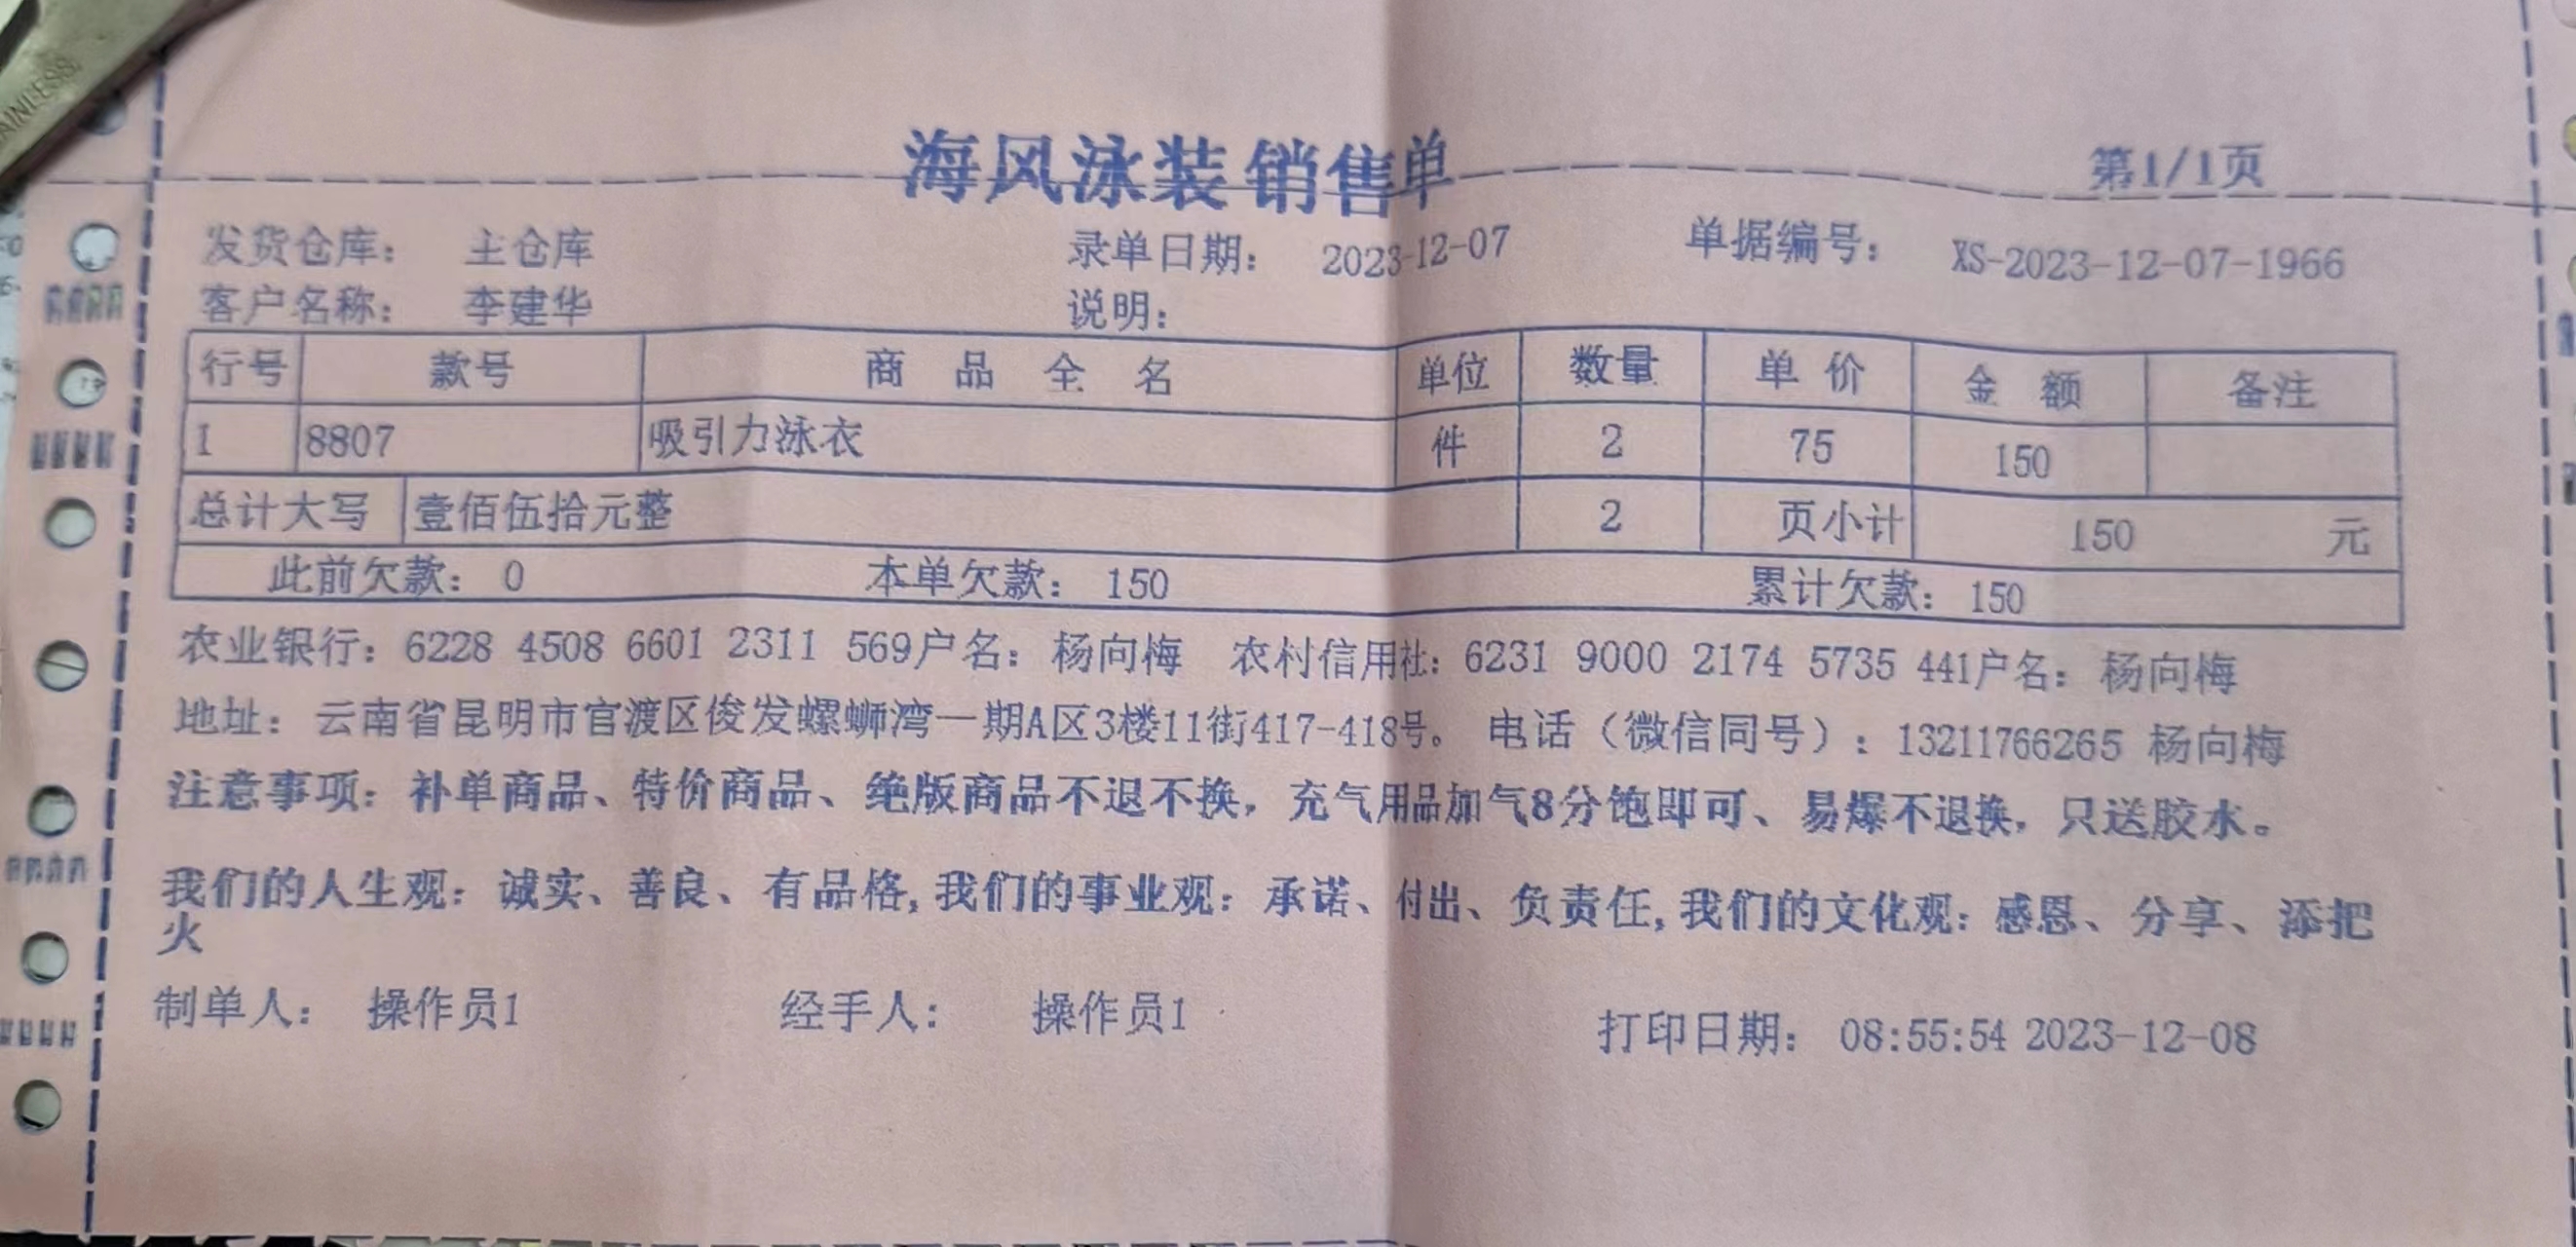 AINLESS
海风泳装销售单 第1/1页
发货仓库： 主仓库 录单日期： 2023-12-07 单据编号： XS-2023-12-07-1966
客户名称： 李建华 说明：
行号 款号 商品全名 单位 数量 单价 金额 备注
1 8807 吸引力泳衣 件 2 75 150
总计大写 壹佰伍拾元整 2 页小计 150 元
此前欠款： 0 本单欠款： 150 累计欠款： 150
农业银行：6228 4508 6601 2311 569户名：杨向梅 农村信用社：6231 9000 2174 5735 441户名：杨向梅
地址：云南省昆明市官渡区俊发螺蛳湾一期A区3楼11街417-418号。 电话（微信同号）：13211766265 杨向梅
注意事项：补单商品、特价商品、绝版商品不退不换，充气用品加气8分饱即可、易爆不退换，只送胶水。
我们的人生观：诚实、善良、有品格,我们的事业观：承诺、付出、负责任,我们的文化观：感恩、分享、添把
火
制单人： 操作员1 经手人： 操作员1 打印日期： 08:55:54 2023-12-08